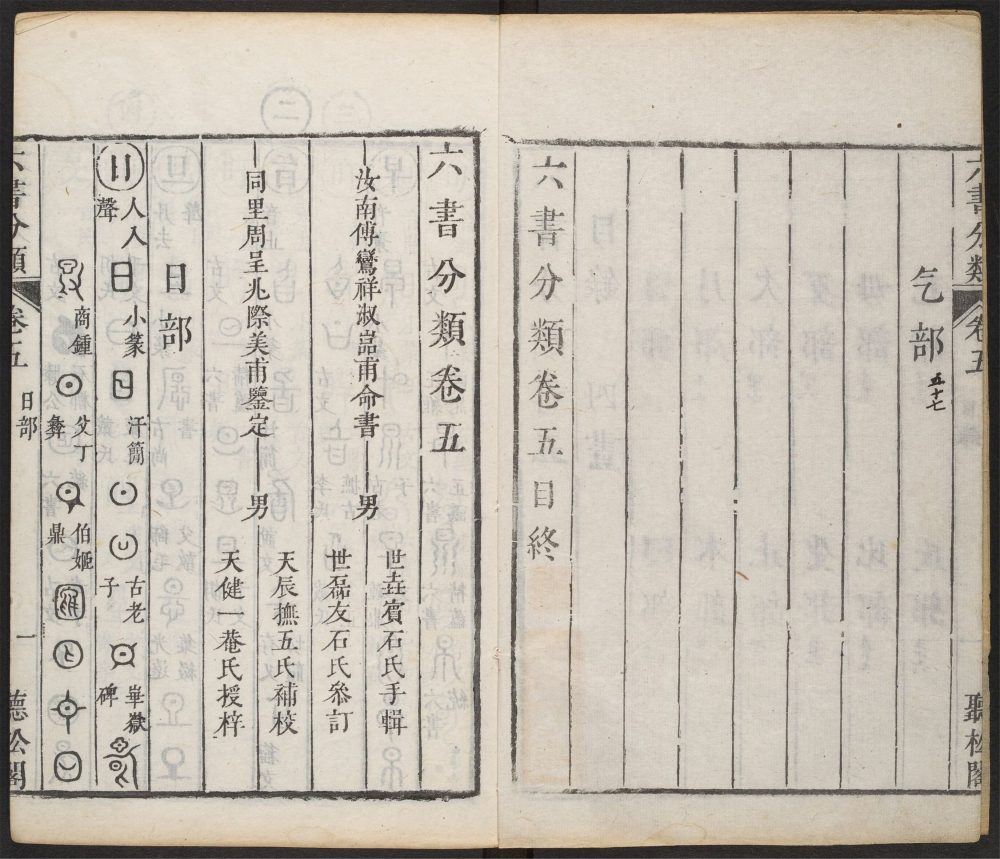 六書分類 卷五
聽松閣
气部 五十七
六書分類卷五目終
六書分類卷五
汝南傅鸞祥淑嵓甫命書 男 世垚賓石氏手輯
世磊友石氏參訂
同里周呈兆際美甫鑒定 男 天辰撫五氏補校
天健一菴氏授梓
日部
日 人入聲 日 小篆 日 汗簡 古老子 崋嶽碑
商鍾 父丁彝 伯姬鼎
六書分類 卷五 日部 一 聽松閣